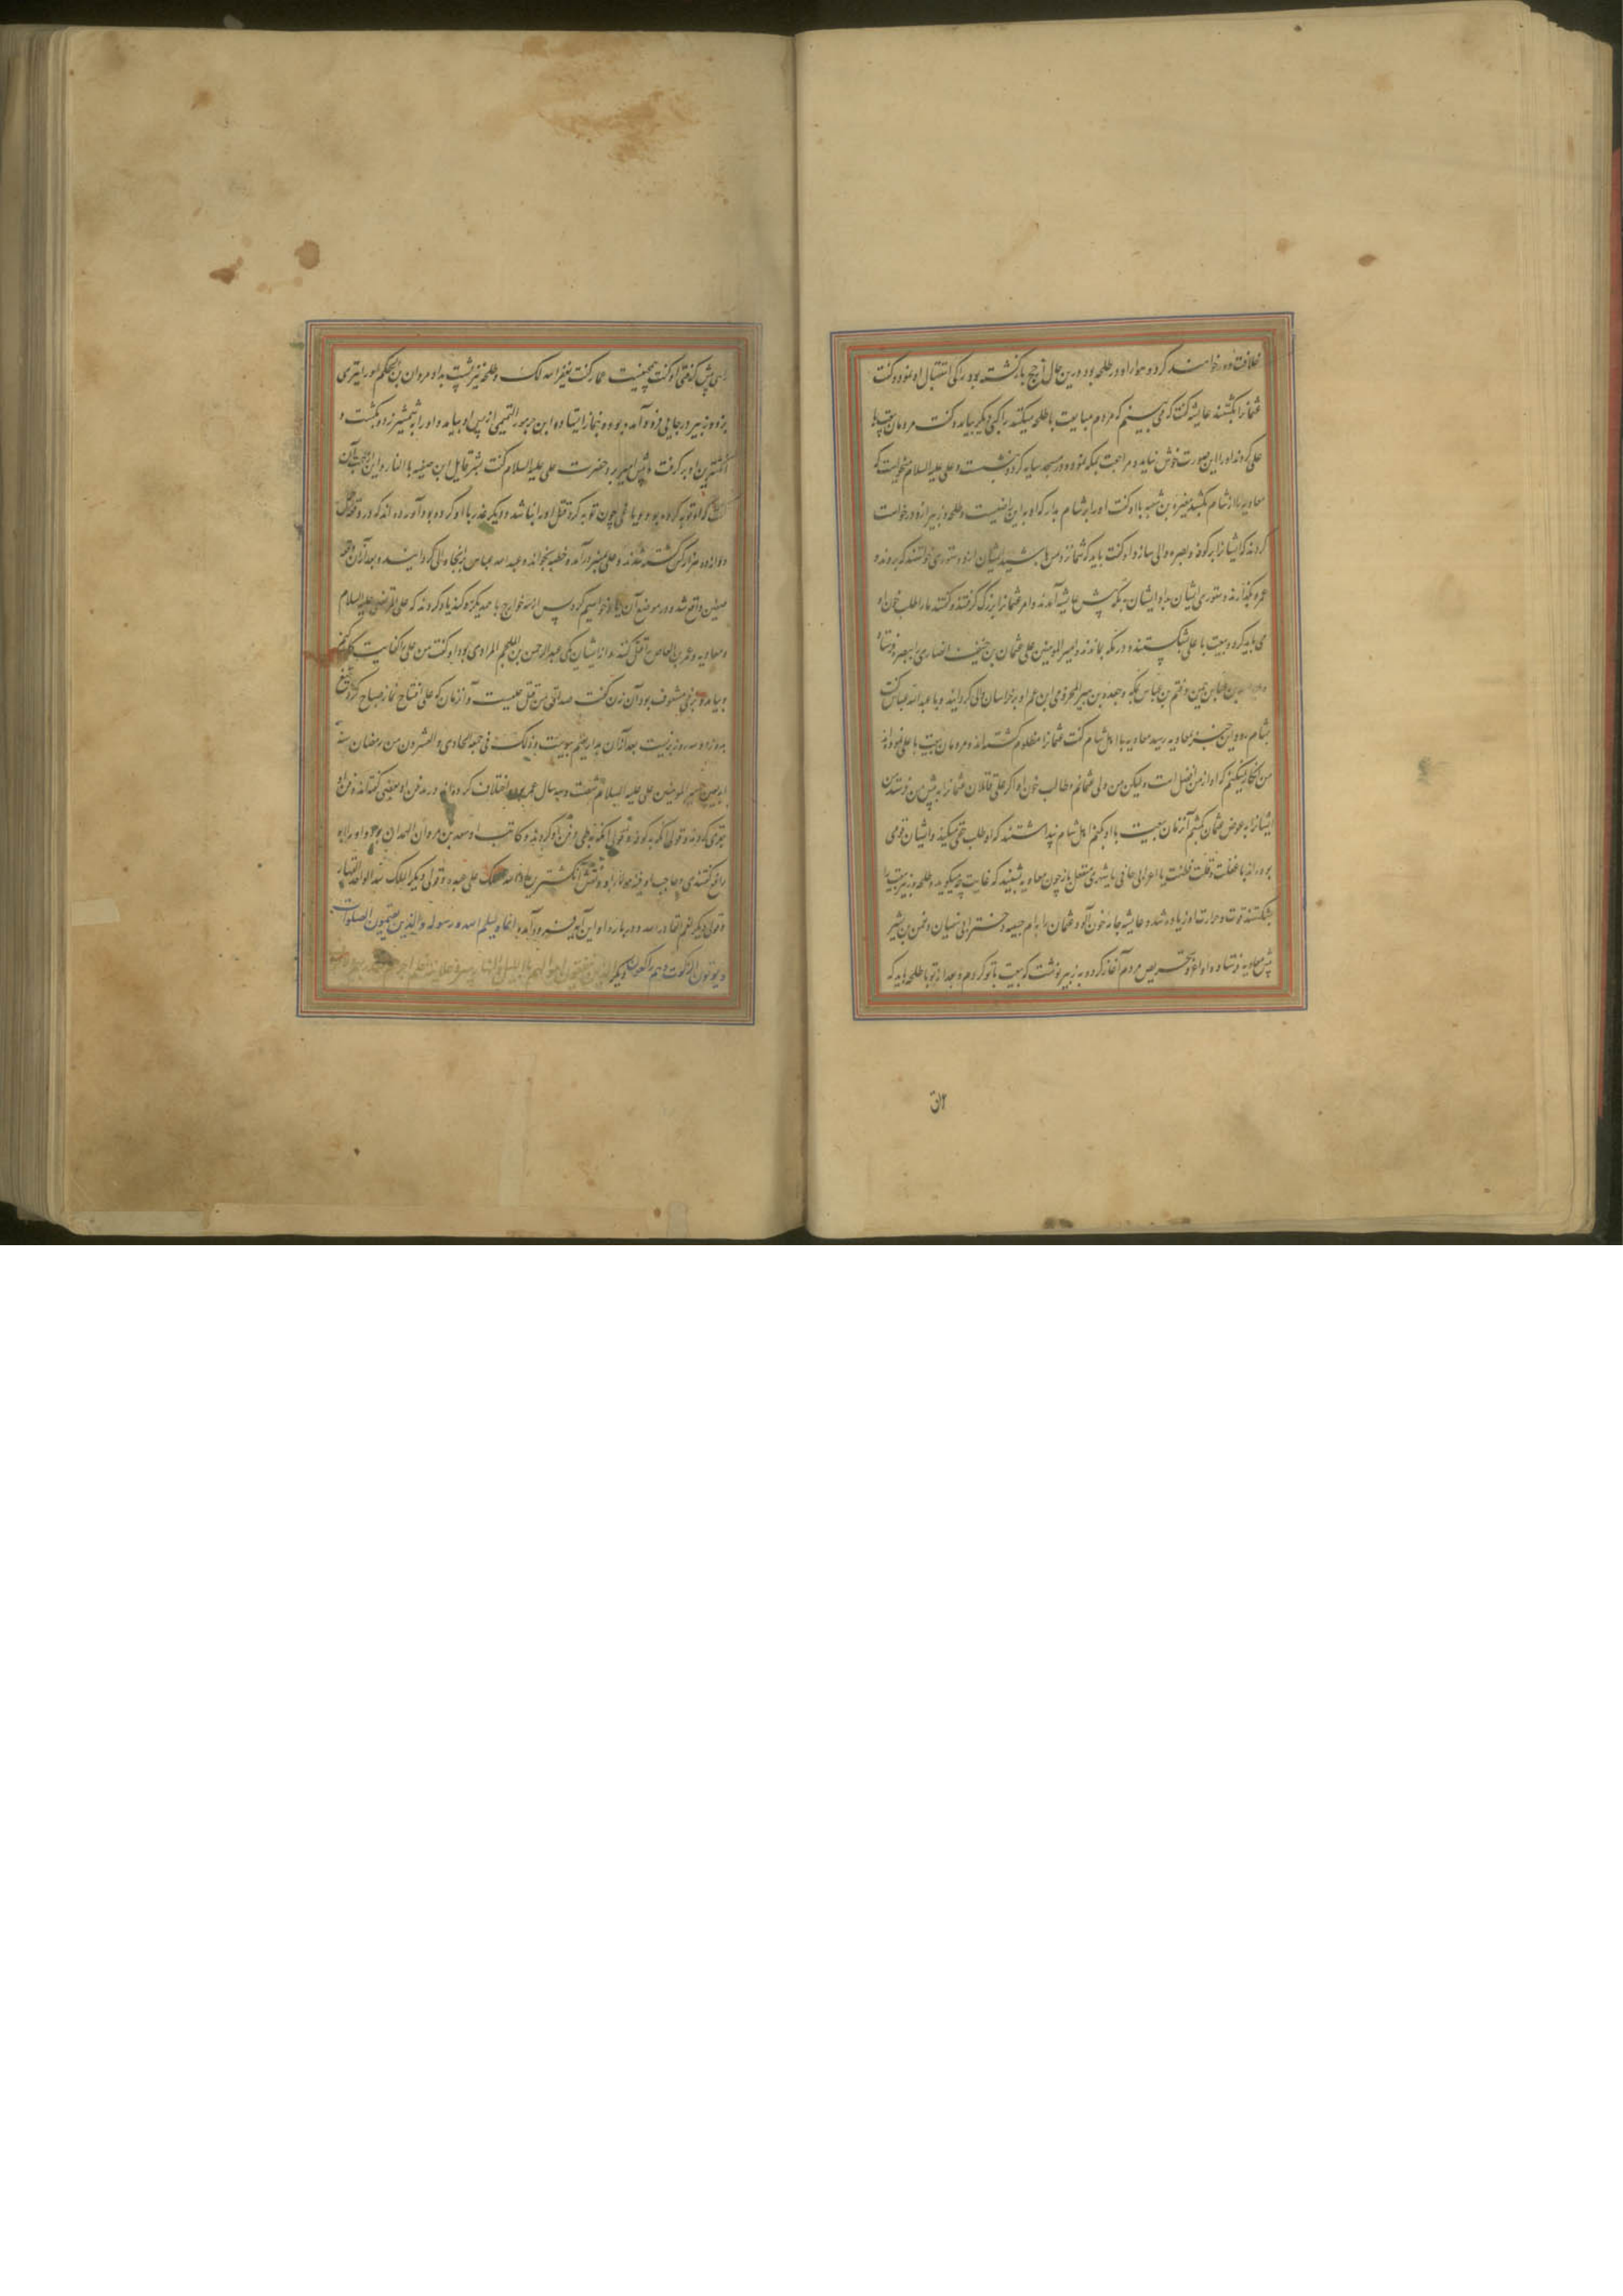 خلافت او درخواهند کرد و هوا راه در طلحه بود درین حال از حج بازگشته بود یکی استقبال او نموده گفت
عثمانرا بکشتند عایشه گفت که می بینم که مردم مبایعت با طلحه میکنند یکی دیگر بیامد و گفت مردمان بیعت با
علی کردند او را این صورت خوش نیامد و مراجعت بمکه نموده در مسجد سایه کرد و بنشست و علی علیه السلام میخواست که
معاویه را از شام بکشد مغیره بن شعبه با او گفت او را بر شام بدار که او باین راضیست و طلحه و زبیر ازو درخواست
کردند که ایشانرا بر کوفه و بصره والی سازد او گفت باید که شما نزد من باشید ایشان ازو دستوری خواستند که بروند و
عمره بگذارند دستوری ایشان داد ایشان بمکه پیش عایشه آمدند و امر عثمانرا بزرگ گرفتند و گفتند ما را طلب خون او
می باید کرد و بیعت با علی بشکستند و در مکه بماندند و امیر المومنین علی عثمان بن حنیف انصاری را ببصره فرستاد
بن عباس بیمن و قثم بن عباس بمکه و جعده بن هبیر المخزومی ابن عم او بر خراسان والی گردانید و با عبد الله عباس گفت
بشام رو و این خبر بمعاویه رسید معاویه با اهل شام گفت عثمانرا مظلوم کشته اند و مردمان بیعت با علی نموده اند
من انکار نمیکنم که او از من افضل است و لیکن من ولی عثمانم و طالب خون او اگر علی قاتلان عثمانرا به پیش من فرستد من
ایشانرا به عوض عثمان بکشم آنزمان بیعت با او بکنم اهل شام پنداشتند که او طلب حق میکند و ایشان قومی
بودند با غفلت و قلت فطنت یا اعرابی جافی یا شهری مغفل باز چون معاویه شنید که عایشه چه میگوید و طلحه و زبیر بیعت را
بشکستند قوت و حرارت او زیاده شد و عایشه جامه خون آلود عثمان را به ام حبیبه دختر ابی سفیان و نعمن بن بشیر
پیش معاویه فرستاد و او اغرا و تحریص مردم آغاز کرد و به زبیر نوشت که بیعت با تو کردم و بعد از تو با طلحه باید که
پیش گرفتی او گفت همچنینست عمار گفت یغفر الله لک و طلحه نیز پشت بداد مروان بن الحکم او را تیری
بزد و زبیر در جایی فرود آمده بود و بنماز ایستاده ابن جرموز التمیمی از پس او بیامد و او را به شمشیر زد و بکشت و
انگشترین او بر گرفت و پیش امیر برد حضرت علی علیه السلام گفت بشر قاتل ابن صفیه بالنار و این از جهت آن
گفت که او توبه کرده بود و یاغی چون توبه کرد قتل او روا نباشد و دیگر غدر با او کرده بود آورده اند که در وقعه جمل
دوازده هزار کس کشته شدند و علی بمنبر بر آمد و خطبه بخواند و عبد الله عباس را بنجا والی گردانید و بعد از آن وقعه
صفین واقع شد و در موضع آن یاد خواهیم کرد پس از سه خوارج با همدیگر سوگند یاد کردند که علی المرتضی علیه السلام
و معاویه و عمر بن العاص را قتل کنند از ایشان یکی عبد الرحمن بن الملجم المرادی بود او گفت من علی را کفایت کنم
و بیامد و بزنی مشغوف بود آن زن گفت صداق من قتل علیست و آنزمان که علی افتتاح نماز صباح کرد تیغ
بزد و سه روز بزیست بعد از آن بدار نعیم پیوست و ذلک فی جمعه الحادی و العشرون من رمضان سنه
اربعین امیر المومنین علی علیه السلام شصت و سه سال عمر بود و اختلاف کرده اند در مدفن او بعضی گفته اند دفن او
بغری کردند و قولی آنکه به کوفه و قولی آنکه بطی دفن او کردند و کاتب او سعد بن مروان الهمدانی بود و او را ابو
رافع گفتندی و حاجب او قنبر بود و نقش انگشترین او الله الملک علی عبده و قولی دیگر الملک لله الواحد القهار
و قولی دیگر نعم القادر الله و در باره او این آیه فرود آمد انما ولیکم الله و رسوله و الذین یقیمون الصلوة
و یوتون الزکوة و هم راکعون و دیگر الذین ینفقون اموالهم باللیل و النهار سرا و علانیه فلهم اجرهم عند ربهم